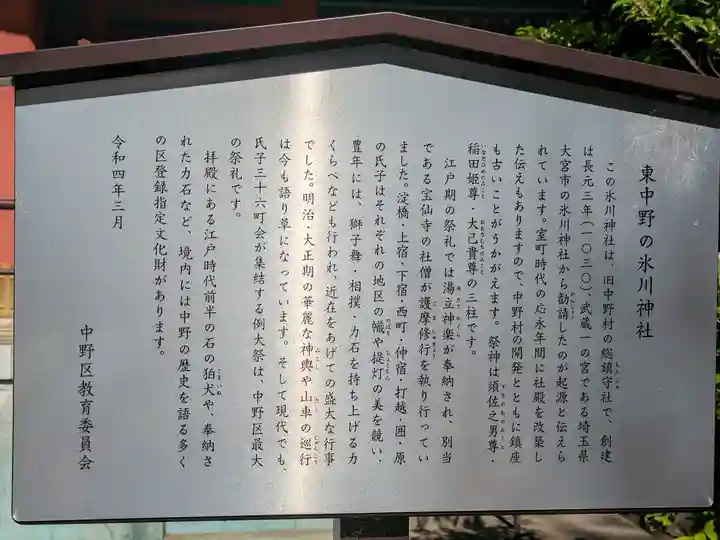 東中野の氷川神社
この氷川神社は、旧中野村の総鎮守社で、創建
は長元三年(一〇三〇)、武蔵一の宮である埼玉県
大宮市の氷川神社から勧請したのが起源と伝えら
れています。室町時代の応永年間に社殿を改築し
た伝えもありますので、中野村の開発とともに鎮座
も古いことがうかがえます。祭神は須佐之男尊・
稲田姫尊・大己貴尊の三柱です。
江戸期の祭礼では湯立神楽が奉納され、別当
である宝仙寺の社僧が護摩修行を執り行ってい
ました。淀橋・上宿・下宿・西町・仲宿・打越・囲・原
の氏子はそれぞれの地区の幟や提灯の美を競い、
豊年には、獅子舞・相撲・力石を持ち上げる力
くらべなども行われ、近在をあげての盛大な行事
でした。明治・大正期の華麗な神輿や山車の巡行
は今も語り草になっています。そして現代でも、
氏子三十六町会が集結する例大祭は、中野区最大
の祭礼です。
拝殿にある江戸時代前半の石の狛犬や、奉納さ
れた力石など、境内には中野の歴史を語る多く
の区登録指定文化財があります。
令和四年三月
中野区教育委員会